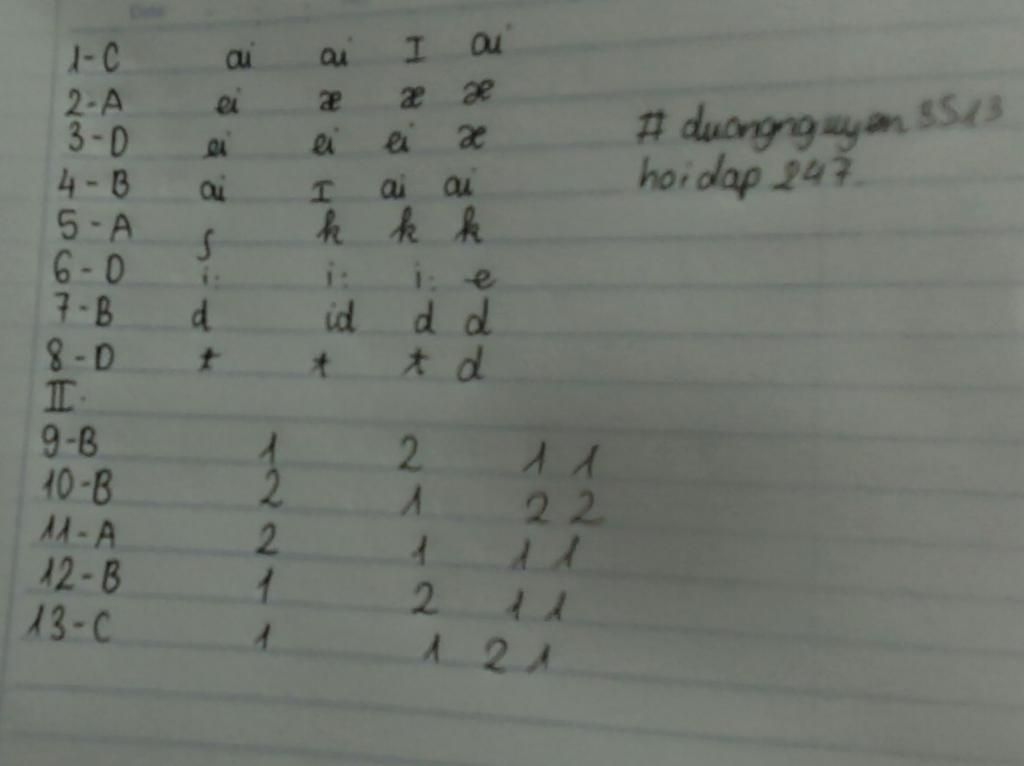 Date
1-C ai ai I ai
2-A ei æ æ æ
3-D ei ei ei æ
4-B ai I ai ai
5-A ʃ k k k
6-D i: i: i: e
7-B d id d d
8-D t t t d
II.
9-B 1 2 1 1
10-B 2 1 2 2
11-A 2 1 1 1
12-B 1 2 1 1
13-C 1 1 2 1
# duongnguyen3513
hoidap 247.